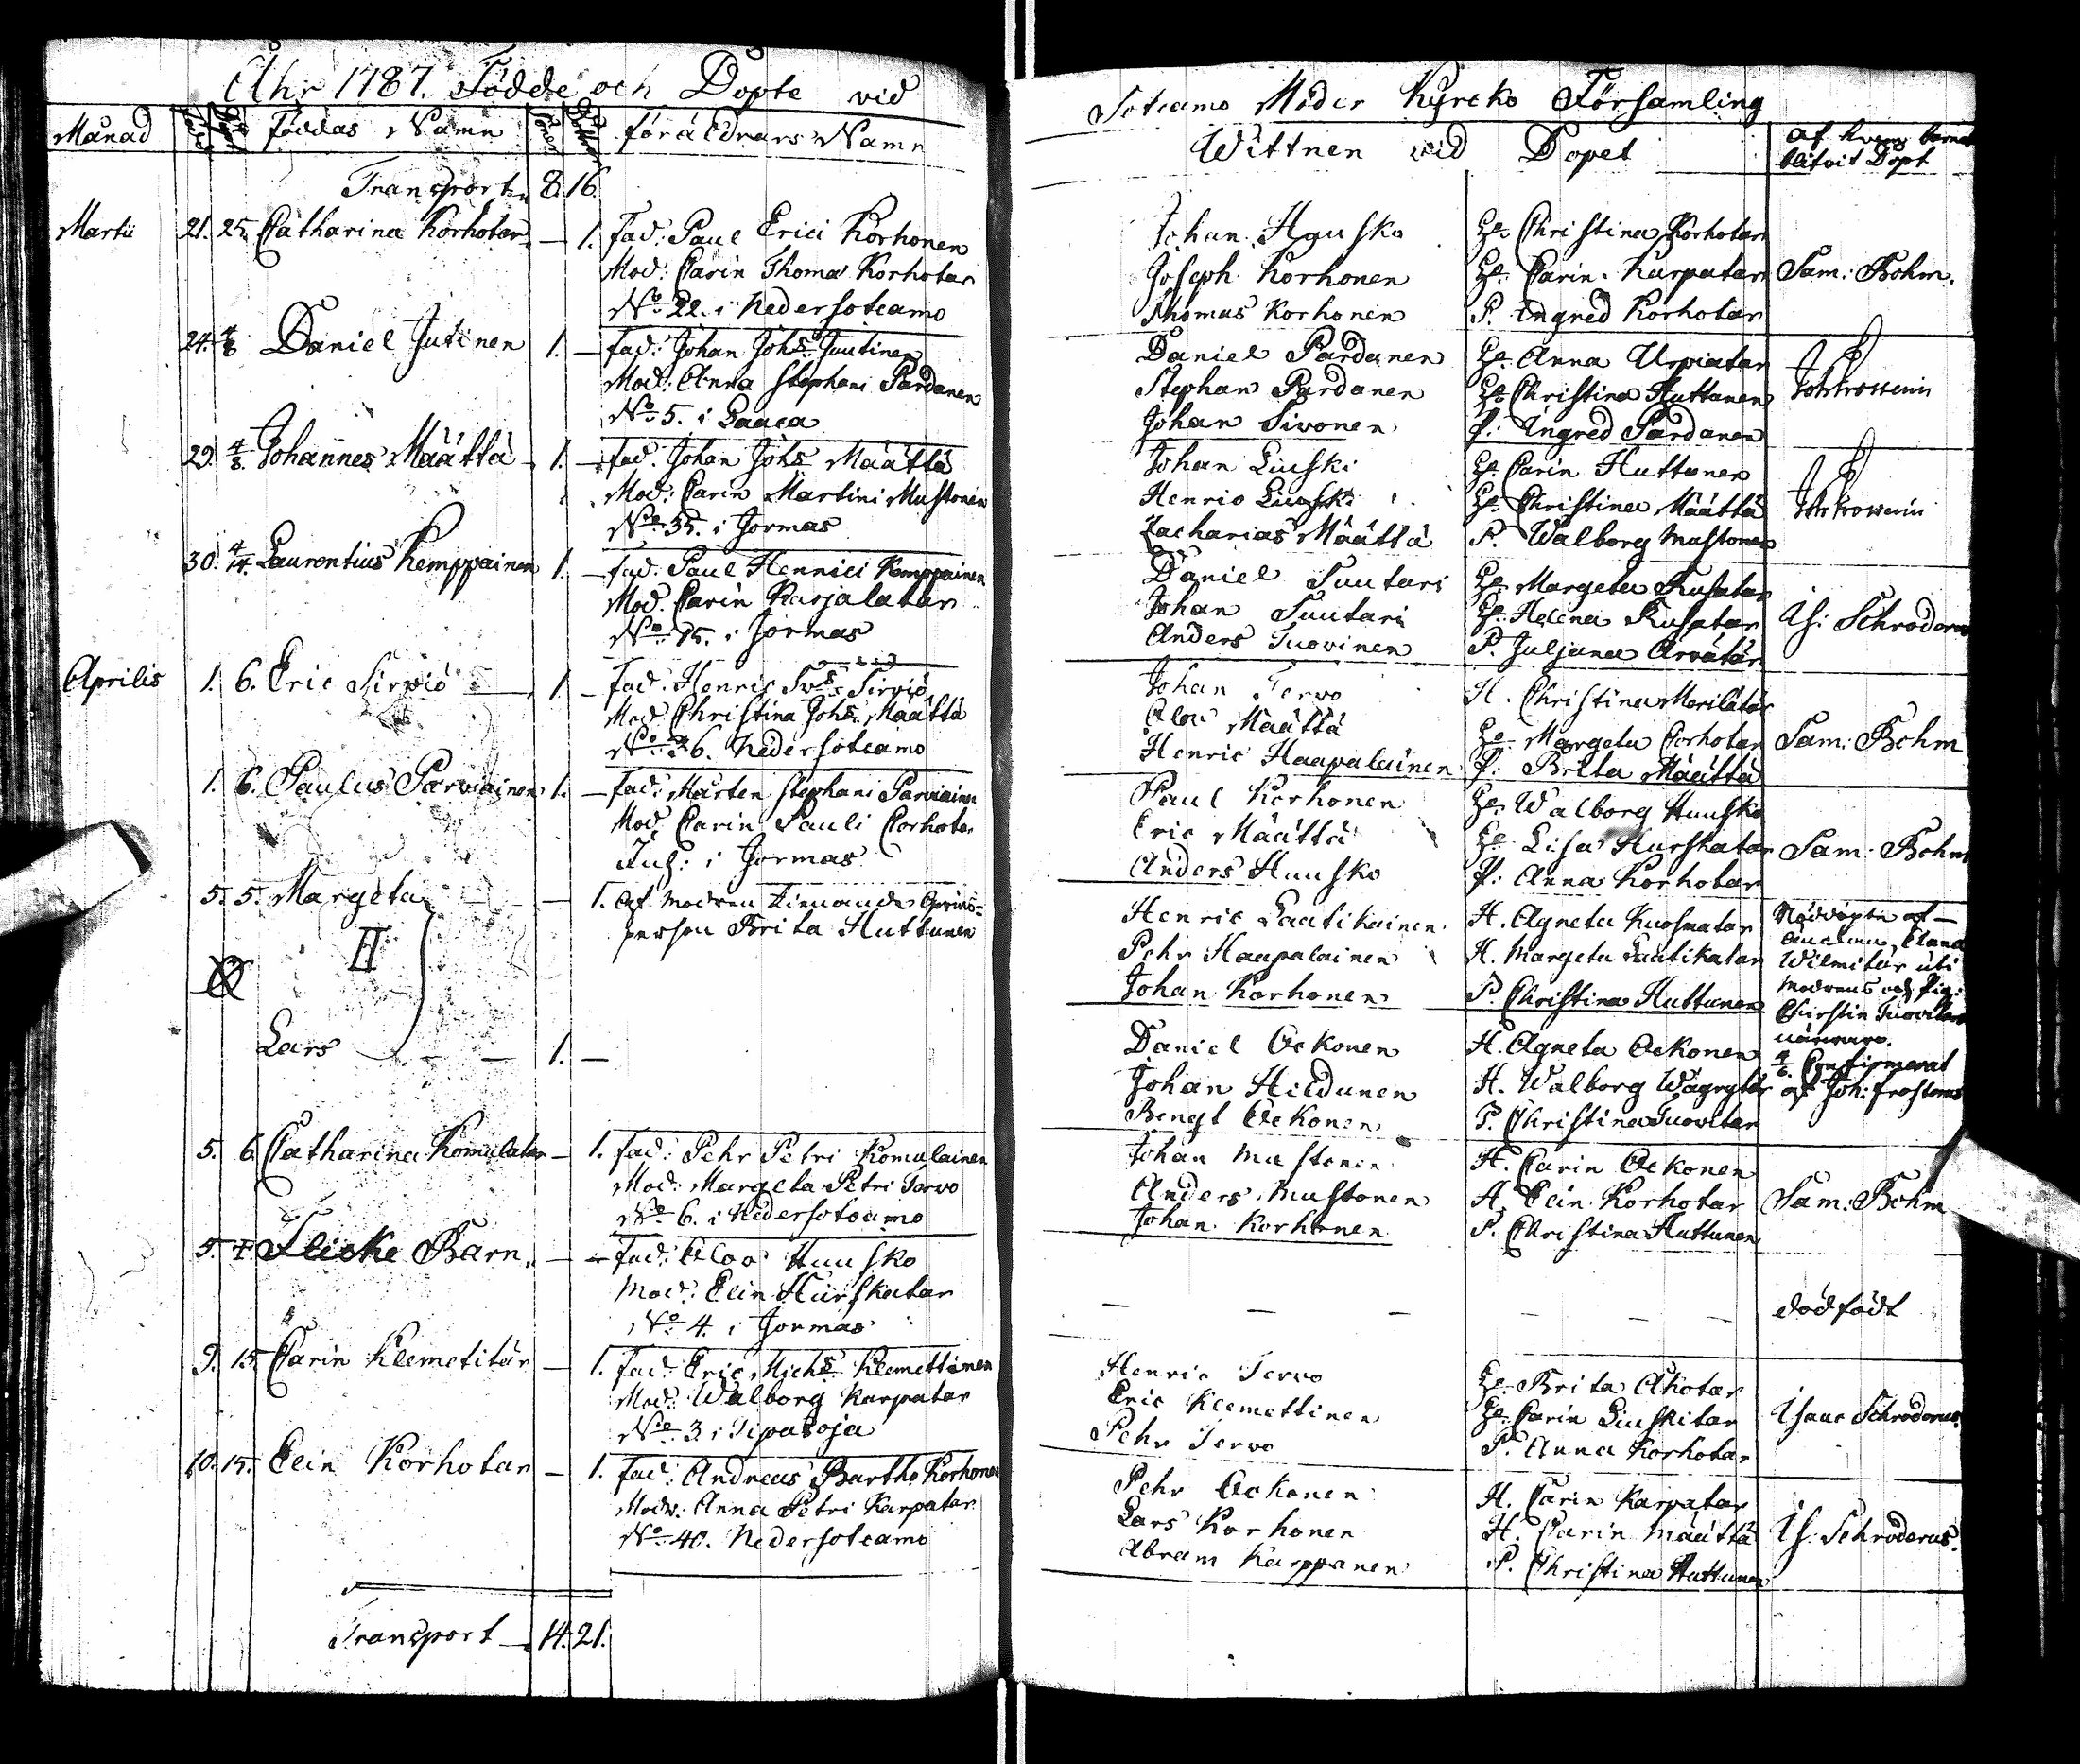 Åhr 1787. Födde och Döpte vid
Månad Föddas Namn Föräldrars Namn
Transport 8. 16.
Martii 21. 25. Catharina Korhotar — 1. Fad: Paul Erici Korhonen
Mod: Carin Thoma Korhotar
No 22. i Nedersotcamo
24. 4/8 Daniel Jutinen 1. — Fad: Johan Johs Juutinen
Mod: Anna Stephani Pardanen
No 5. i Laaca
29. 4/8. Johannes Määttä 1. — Fad: Johan Johs Määttä
Mod: Carin Martini Mustonen
No 35. i Jormas
30. 4/14. Laurentius Kemppainen 1. — Fad: Paul Henrici Kemppainen
Mod. Carin Karjalatar
No 15. i Jormas
Aprilis 1. 6. Eric Sirviö 1. — Fad: Henric Sirviö
Mod. Christina Johs Määttä
No 26. Nedersotcamo
1. 6. Paulus Parviainen 1. — Fad: Mårten Stephani Parviainen
Mod. Carin Pauli Corhotar
Inh: i Jormas
5. 5. Margeta — 1. Af modren tienande
person Brita Huttunen
II
Lars — — 1. —
5. 6. Catharina Komulatar — 1. Fad: Pehr Petri Komulainen
Mod: Margeta Petri Tervo
No 6. i Nedersotcamo
5. Flicke Barn — — Fad: Olov Huusko
Mod: Elin Hurskatar
No 4. i Jormas
9. 15. Carin Klemetitär — 1. Fad: Eric Michs Klemettinen
Mod: Walborg Karpatar
No 3. i Tipasoja
10. 15. Elin Korhotar — 1. Fad: Andreas Bartho Korhonen
Modr: Anna Petri Karpatar
No 40. Nedersotcamo
Transport — 14. 21.
Sotcamo Moder Kyrcko Församling
Wittnen vid Dopet Af hvem barnet
blifvit Döpt
Johan Huusko Hu. Christina Korhotar
Joseph Korhonen Hu. Carin Karpatar Sam: Bohm.
Thomas Korhonen P. Ingred Korhotar
Daniel Pardanen Hu. Anna Urpiatar
Stephan Pardanen Hu. Christina Huttunen
Johan Sivonen P: Ingred Pardanen
Johan Liuski Hu. Carin Huttunen
Henric Liuski Hu. Christina Määttä
Zacharias Määttä P. Walborg Mustonen
Daniel Suutari Hu. Margeta Kusatar
Johan Suutari Hu. Helena Kusatar Is: Schroderus
Anders Tuovinen P. Juljana Arvatär
Johan Tervo H. Christina Merilätär
Olov Määttä Hu. Margeta Corhotar Sam: Bohm
Henric Haapalainen P: Brita Määttä
Paul Korhonen Hu. Walborg Huusko
Eric Määttä Hu. Lisa Hurskatar Sam: Bohm
Anders Huusko P: Anna Korhotar
Henric Laatikainen H. Agneta Kuosmatar Nöddöpte af
Pehr Haapalainen H. Margeta Laatikatar Wilmitär uti
Johan Korhonen P. Christina Huttunen modrens och pig:
Christin Tuovitar
Daniel Ockonen H. Agneta Ockonen närvaro.
Johan Hildunen H. Walborg 4/6. Confirmerat
Bengt Ockonen P. Christina Tuovitar af Joh: Frosterus
Johan Mustonen H. Carin Ockonen
Anders Mustonen H. Elin Korhotar Sam: Bohm
Johan Korhonen P. Christina Huttunen
— — — — — — dödfödt
Henric Tervo Hu. Brita Ahotar
Eric Klemettinen Hu. Carin Liuskitar Isaac Schroderus.
Pehr Tervo P. Anna Korhotar
Pehr Ockonen H. Carin Karpatar
Lars Korhonen H. Carin Määttä Is: Schroderus.
Abram Karppanen P. Christina Huttunen